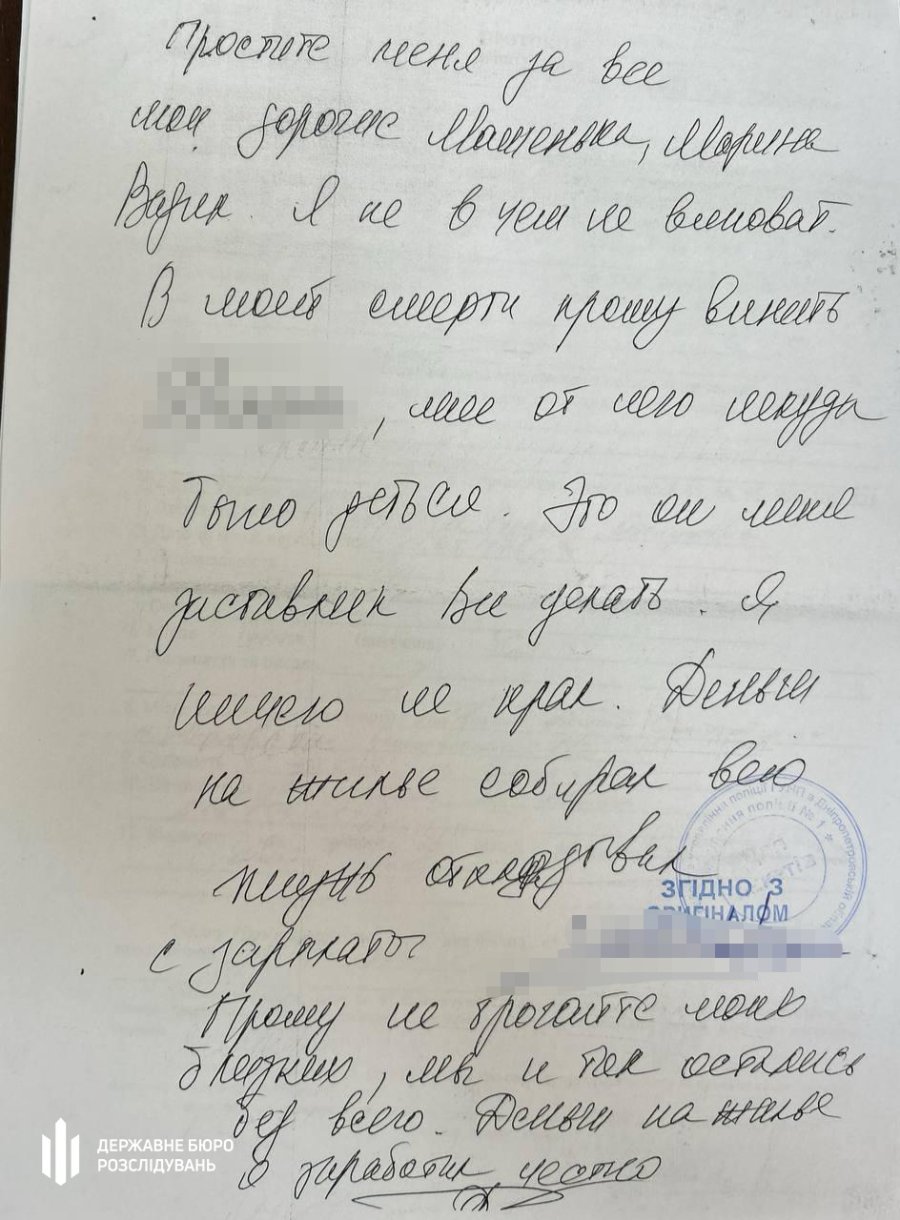 Простите меня за все
мои дорогие Машенька, Марина
Вадик. Я не в чем не виноват.
В моей смерти прошу винить
, мне от него некуда
было деться. Это он меня
заставлял все делать. Я
ничего не крал. Деньги
на жилье собирал всю
жизнь откладывал
ЗГІДНО З
ОРИГІНАЛОМ
с зарплаты
Прошу не трогайте моих
близких, мы и так остались
без всего. Деньги на жилье
я заработал честно
ДЕРЖАВНЕ БЮРО
РОЗСЛІДУВАНЬ